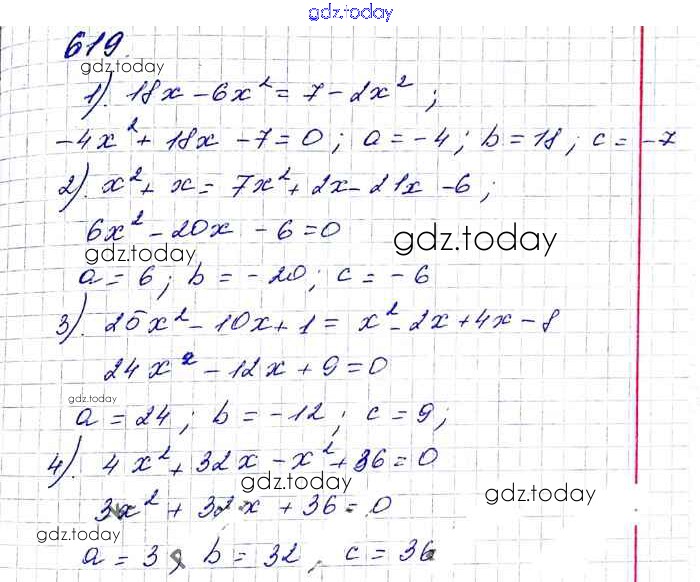 gdz.today
619.
gdz.today
1). 18x - 6x² = 7 - 2x² ;
-4x² + 18x - 7 = 0 ; a = -4 ; b = 18 ; c = -7
2). x² + x = 7x² + 2x - 21x - 6 ;
6x² - 20x - 6 = 0
gdz.today
gdz.today
a = 6 ; b = -20 ; c = -6
3). 25x² - 10x + 1 = x² - 2x + 4x - 8
24x² - 12x + 9 = 0
gdz.today
a = 24 ; b = -12 ; c = 9 ;
4). 4x² + 32x - x² + 36 = 0
gdz.today
gdz.today
3x² + 32x + 36 = 0
gdz.today
a = 3 ; b = 32 , c = 36